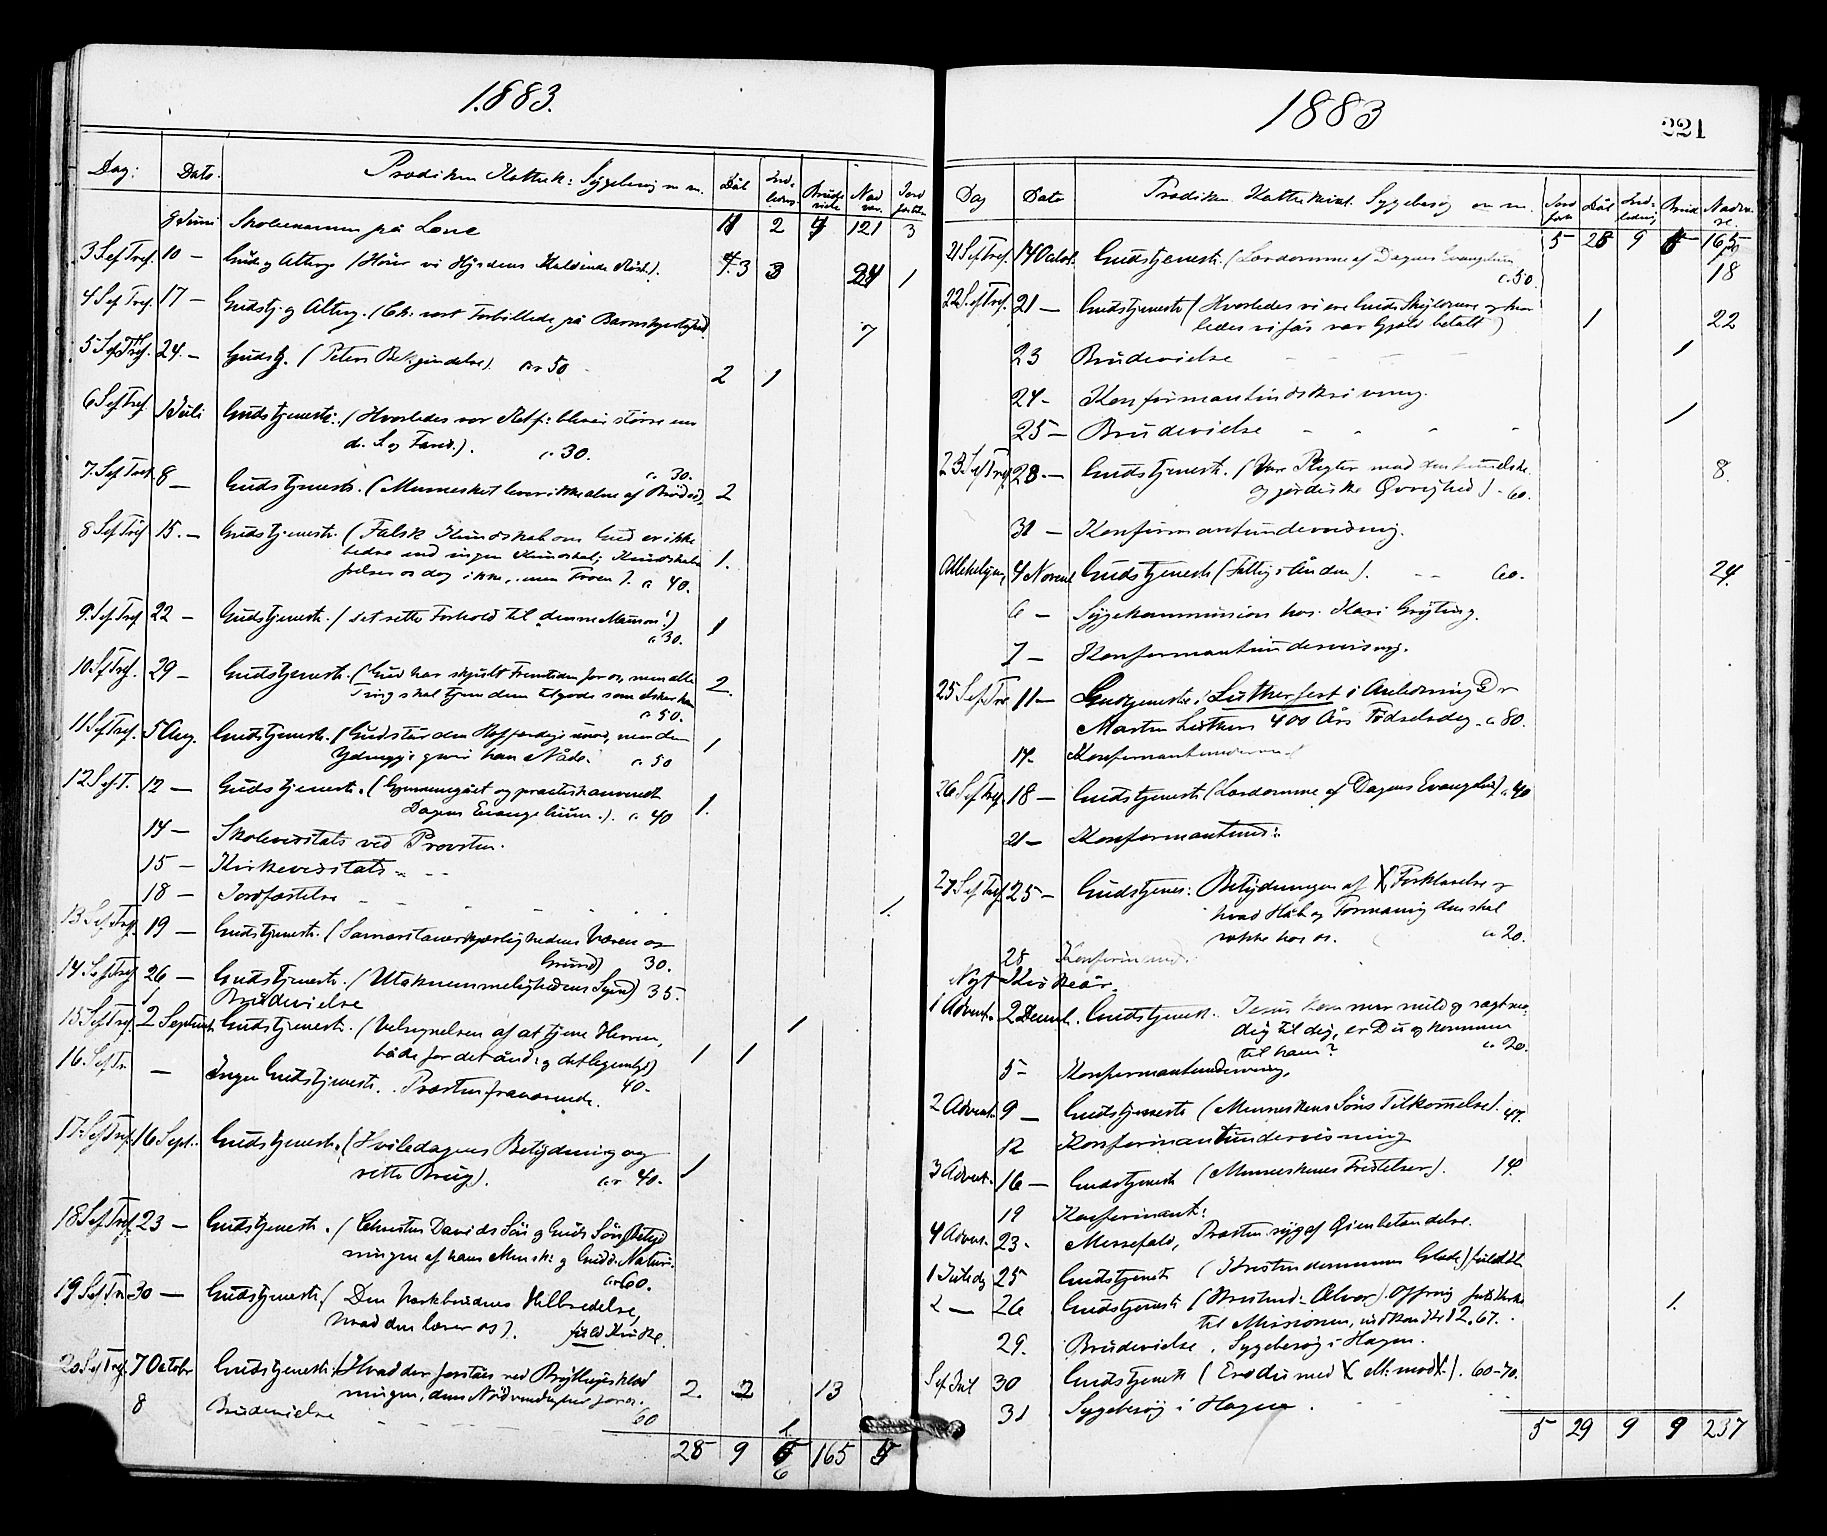 1883.
Dag: Dato. Prædiken Kathek: Sygebesøg m m. Dåb Ind- ledning Brude- vielse Nad ver. Jord fæstelse
9 Juni Skoleexamen på 11 2 4 121 3
3 S.ef.Tref. 10 — Guds. og Alterg. (Hører vi Hyrdens kaldende Røst). 3 24 1
4 S.ef.Tref. 17 — Gudstj. og Alterg. (Ch. vort Forbillede på Barmhjertighed) 7
5 S.ef.Tref. 24. — Gudstj. (Peters Bekjendelse). ca 50 2 1
6 S.ef.Tref. 1 Juli Gudstjeneste. (Hvorledes vor Retf: bliver større end
de S. og Faris.). c. 30.
7. S.ef.Tref. 8 — Gudstjeneste. (Mennesket lever ikke alene af Brød) c. 30. 2
8 S.ef.Tref. 15. — Gudstjeneste. (Falsk Kundskab om Gud er ikke
bedre end ingen Kundskab; Kundskab
frelser os dog ikke, men Troen). c. 40. 1.
9. S.ef.Tref. 22 — Gudstjeneste. (det rette Forhold til "denne Mamon".)
c. 30. 1
10. S.ef.Tref. 29 — Gudstjeneste. (Gud har skjult Fremtiden for os, men alle
Ting skal tjene dem tilgode som elsker ham
c. 50. 2.
11 S.ef.Tref. 5 Aug. Gudstjeneste. (Gud står den Hoffærdige imod, men den
Ydmyge giver han Nåde. c. 50 1
12 S.ef.T. 12 — Gudstjeneste. (Gjennemgået og practisk anvendt
Dagens Evangelium.). c. 40 1.
14 — Skolevisitats ved Provsten.
15 — Kirkevisitats
18 — Jordfæstelse 1.
13 S.ef.Tref. 19 — Gudstjeneste. (Samaritanerkjærlighedens Væsen og
Grund) 30.
14. S.ef.Tref. 26 — Gudstjeneste. (Utaknemmelighedens Synd) 35.
Brudevielse
15 S.ef.Tref. 2 Septemb. Gudstjeneste. (Velsignelsen af at tjene Herren, 1
både for det ånd: og det legemlige) 40. 1 1
16. S.ef.Tr. — Ingen Gudstjeneste. Præsten fraværende.
17. S.ef.Tref. 16 Sept. Gudstjeneste. (Hviledagens Betydning og
rette Brug). ca 40. 1
18 S.ef.Tref. 23 — Gudstjeneste. (Christus Davids Søn og Guds Søn, Betyd
ningen af hans Mensk: og Gudd: Natur.
ca 60.
19 S.ef.Tr. 30 — Gudstjeneste. (Den Værkbrudnes Helbredelse,
hvad den lærer os). fuld Kirke.
20 S.ef.Tref. 7 October Gudstjeneste. (Hvad der forståes ved Bryllupsklæd
ningen, dens Nødvendighed for os. 60 2. 2 13
8 Brudevielse 1
28 9 6 165 5
1883
221
Dag Dato Prædiken Kathekisat. Sygebesøg m m. Jord fæst Dåb Ind- ledning Brud Nadve- re
5 28 9 6 165
21 S.ef.Tref. 14 Octob. Gudstjeneste. (Lærdomme af Dagens Evangelium
c. 50. 18
22 S.ef.Tref. 21 — Gudstjeneste (Hvorledes vi ere Guds Skyldnere og hvor
ledes vi får vor Gjæld betalt) 1 22
23 Brudevielse 1
24 - Konfirmantindskrivning.
25 — Brudevielse 1
23. S.ef.Tref. 28. — Gudstjeneste. (Vore Pligter mod den himmelske
og jordiske Øvrighed). 60. 8.
31 — Konfirmantundervisning.
Allehelgen 4 Novemb Gudstjeneste (Fattig i Ånden). 60. 24.
6 — Sygekommunion hos Kari Gryting.
7 — Konfirmantundervisning.
25 S.ef.Tr. 11 — Gudstjeneste: Lutherfest i Anledning Dr
Martin Luthers 400 Års Fødselsdag. c. 80.
14. Konfirmantunderv
26 S.ef.Tref. 18 — Gudstjeneste (Lærdomme af Dagens Evangelium) c. 40
21 — Konfirmantund:
27 S.ef.Tref. 25 — Gudstjenes: Betydningen af X Forklarelse og
hvad Håb og Formaning den skal
vække hos os. c. 20.
28 Konfirm und.
Nyt Kirkeår.
1 Advent. 2 Decemb. Gudstjenest. Jesus kommer mild og sagtmo
dig til dig, er Du og kommen
til ham? c. 20.
5 - Konfirmantundervisning.
2 Advent. 9 — Gudstjeneste (Menneskens Søns Tilkomelse). 47.
12 Konfirmantundervisning
3 Advent. 16 — Gudstjeneste (Menneskenes Fristelser). 14.
19 Konfirmant:
4 Advent. 23. Messefald, Præsten syg af Øienbetændelse.
1 Juledag 25 Gudstjeneste (Kristendommens Glæde) fuldt
2 — 26 Gudstjeneste (Kristend. Alvor). Offring fuld Kirke
til Missionen, indkom Kr 12.67. 1.
29. Brudevielse. Sygebesøg i Hagen.
S.ef.Jul 30 Gudstjeneste (Er du med X el: mod X.). 60-70.
31 Sygebesøg i Hagen.
5 29 9 9 237